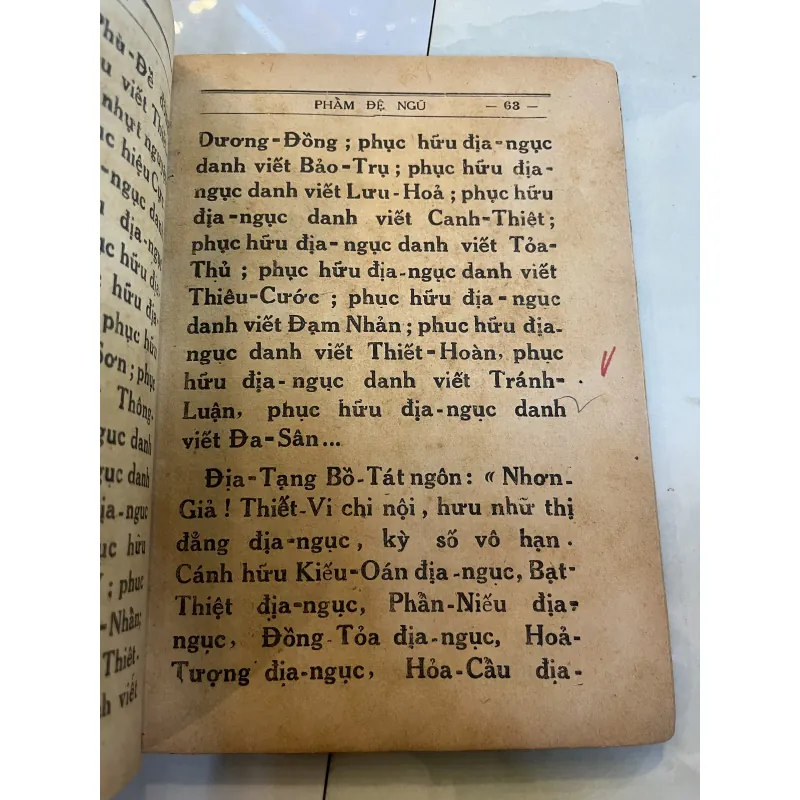 Phù-Đề
viết
nhựt
hiệu
ngục danh
địa-ngục
hữu địa-
hữu địa-
phục hữu
Sơn; phục
Thông-
ngục danh
ngục danh
địa-ngục
phục hữu
; phục
-Nhẫn;
Thiết-
danh viết
PHẨM ĐỆ NGŨ — 63 —
Dương-Đồng ; phục hữu địa-ngục
danh viết Bảo-Trụ ; phục hữu địa-
ngục danh viết Lưu-Hoả ; phục hữu
địa-ngục danh viết Canh-Thiệt ;
phục hữu địa-ngục danh viết Tỏa-
Thủ ; phục hữu địa-ngục danh viết
Thiêu-Cước ; phục hữu địa-ngục
danh viết Đạm Nhản ; phuc hữu địa-
ngục danh viết Thiết-Hoàn, phục
hữu địa-ngục danh viết Tránh-
Luận, phục hữu địa-ngục danh
viết Đa-Sân...
Địa-Tạng Bồ-Tát ngôn : « Nhơn-
Giả ! Thiết-Vi chi nội, hưu như thị
đẳng địa-ngục, kỳ số vô hạn.
Cánh hữu Kiếu-Oán địa-ngục, Bạt-
Thiệt địa-ngục, Phần-Niếu địa-
ngục, Đồng-Tỏa địa-ngục, Hoả-
Tượng địa-ngục, Hỏa-Cầu địa-